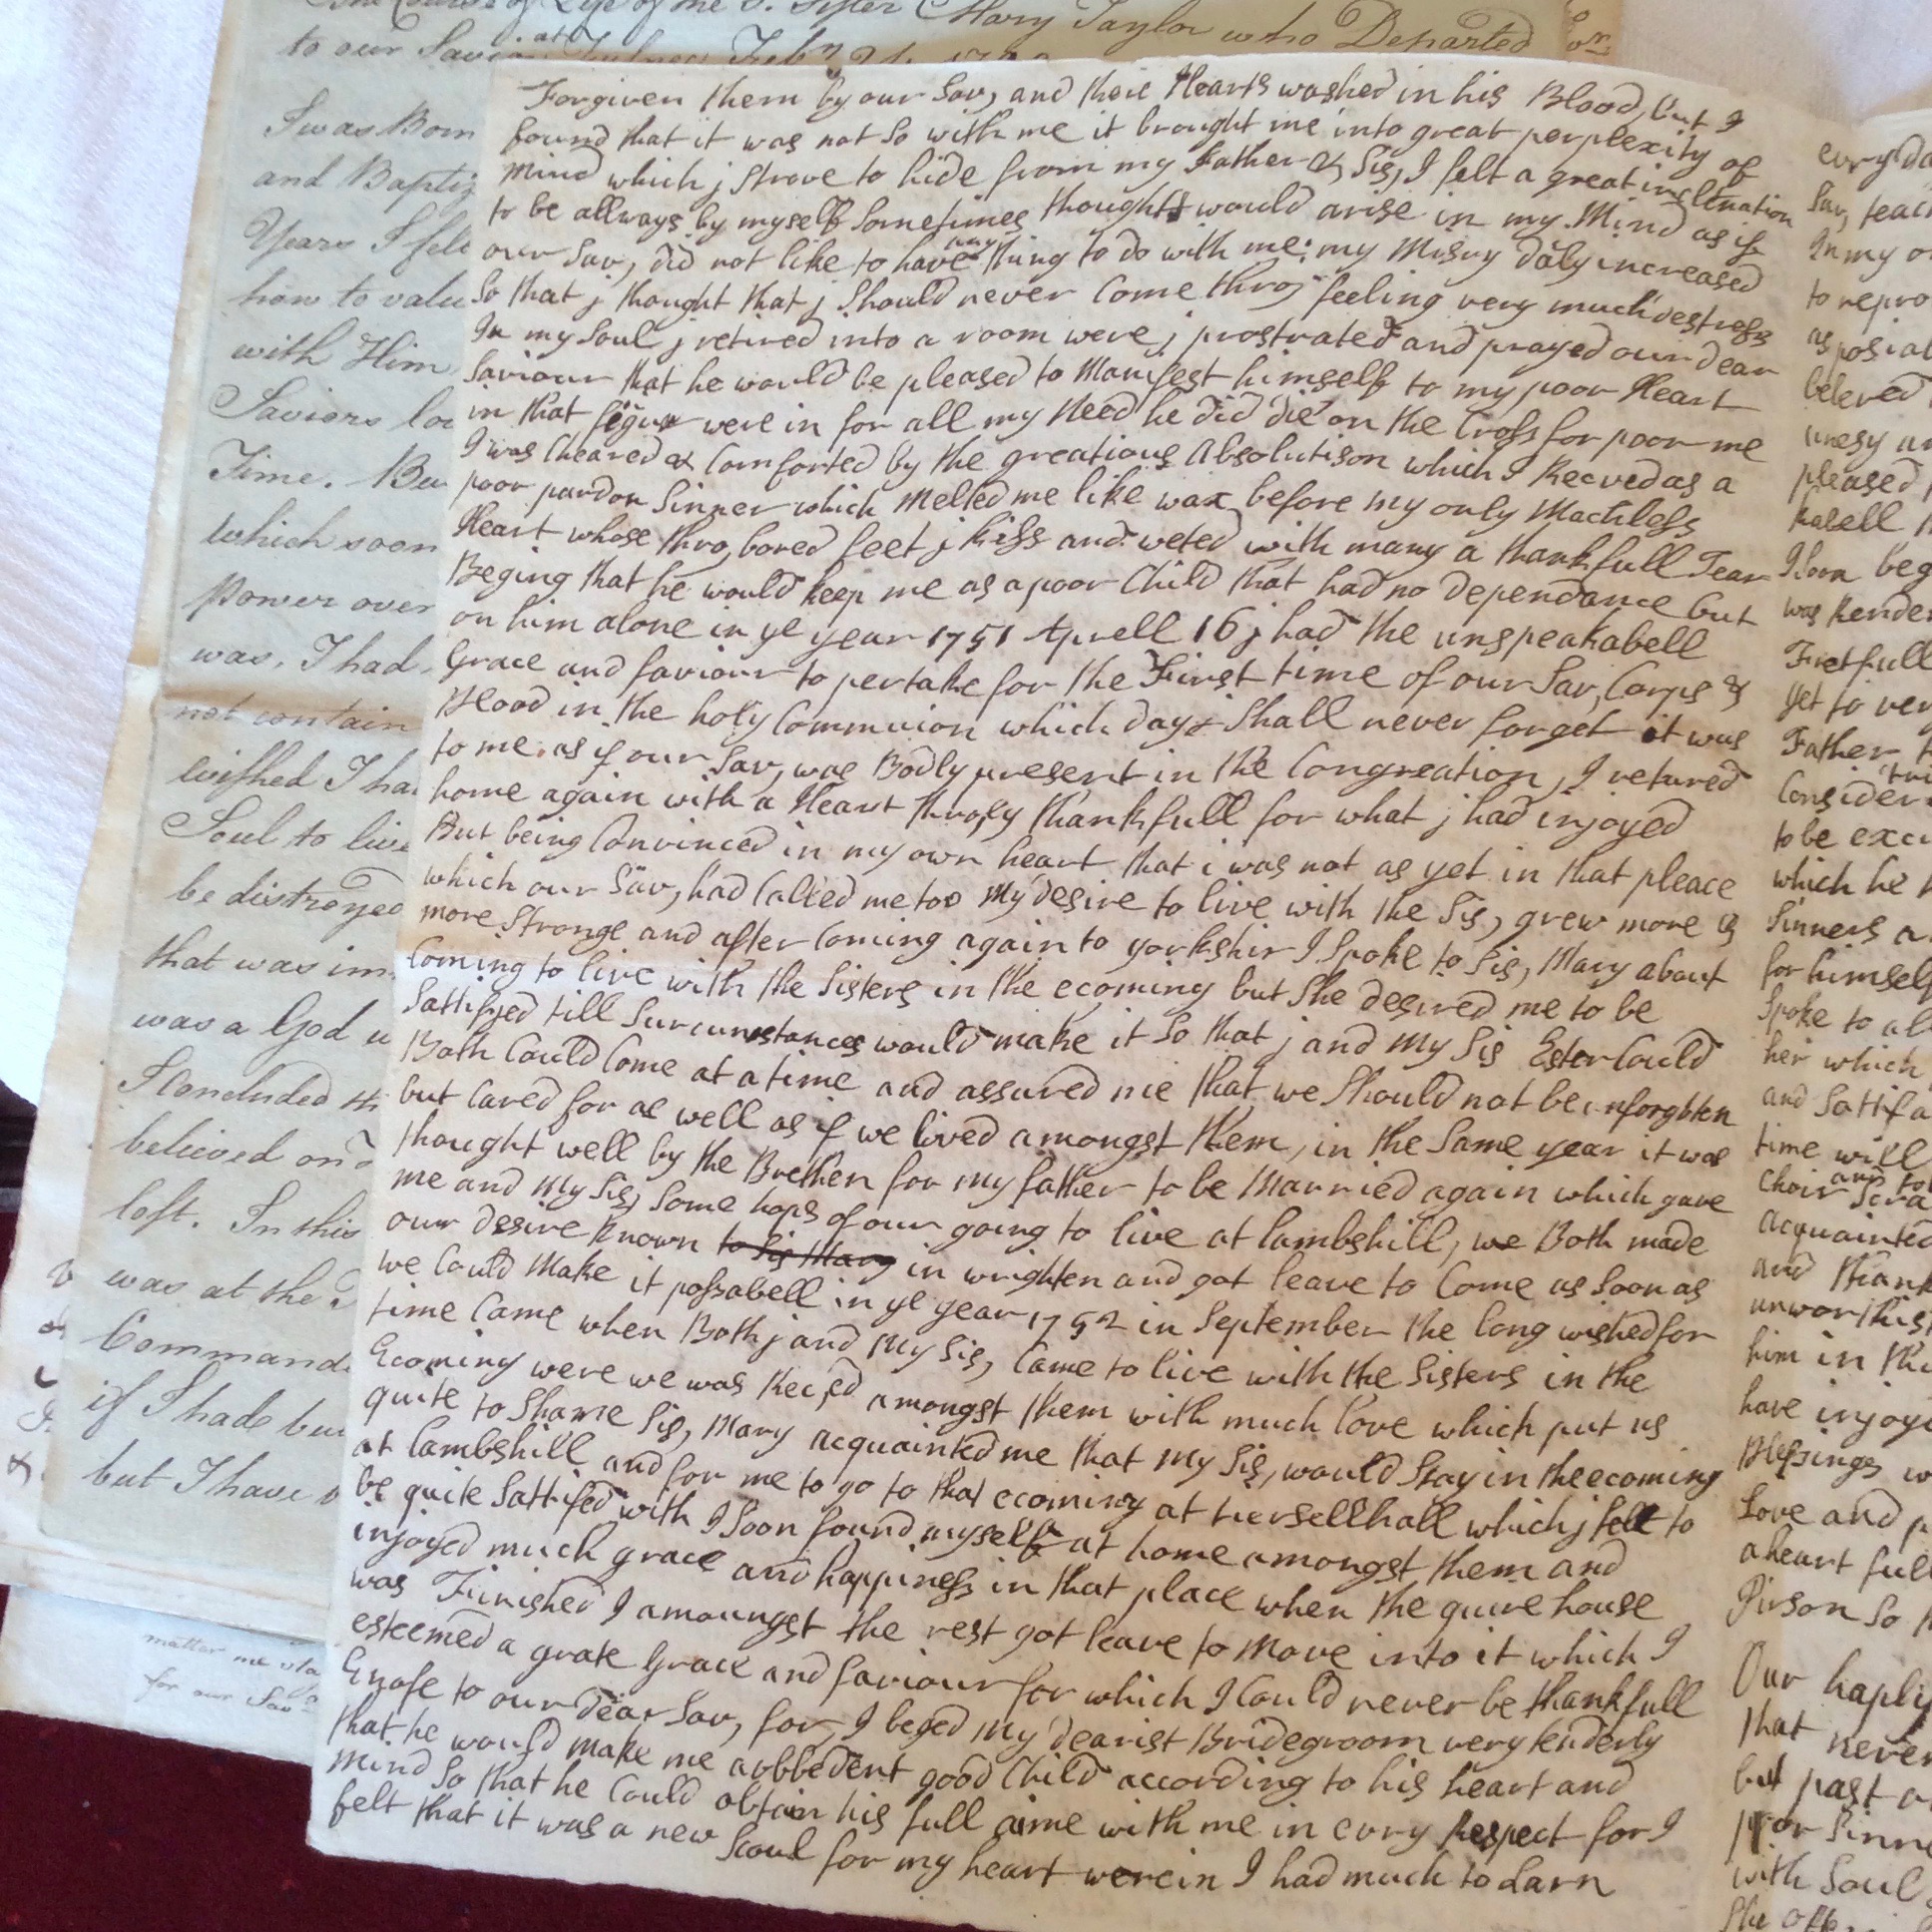 The Course of Life of the S. Sister Mary Taylor who Departed
to our Savior at Fulnec Feb
I was Born
and Baptiz
Years I felt
how to valu
with Him
Saviors lo
Time. Bu
which soon
power over
was. I had
not contain
wished I ha
Soul to live
be distroyed
that was im
was a God u
I Concluded th
believed and
loft. In this
was at the
Commande
if I had bu
but I have
matter me
for our Sav
Forgiven them by our Sav, and their Hearts washed in his Blood, but I
found that it was not So with me it brought me into great perplexity of
Mind which j Strove to hide from my Father & Sis, I felt a great inclination
to be allways by myself Sometimes thoughts would arise in my Mind as if
our Sav, did not like to have any thing to do with me: my Misry daly increased
So that j thought that j Should never Come thro, feeling very much destress
In my Soul j retired into a room were j prostrated and prayed our dear
Saviour that he would be pleased to Manifest himself to my poor Heart
in that figur were in for all my Need he did die on the Cross for poor me
I was Cheared & Comforted by the greatious Absolutison which I Recved as a
poor pardon Sinner which Melted me like wax before my only Machless
Heart whose thro, bored feet j kiss and weted with many a thankfull Tear
Beging that he would keep me as a poor Child that had no dependance but
on him alone in ye year 1751 Aprell 16 j had the unspeakabell
Grace and faviour to pertake for the First time of our Sav, Corps &
Blood in the holy Commuion which day j Shall never forget it was
to me as if our Sav, was Bodly present in the Congreation, I retured
home again with a Heart throly thankfull for what j had injoyed
But being Convinced in my own heart that i was not as yet in that pleace
which our Sav, had Called me too My desire to live with the Sis, grew more &
more Strong and after Coming again to yorkshir I Spoke to Sis, Mary about
Coming to live with the Sisters in the ecoming but She desired me to be
Sattifyed till Surcumstances would make it So that j and My Sis Ester Could
Both Could Come at a time and assured me that we Should not be
but Cared for as well as if we lived amongst them, in the Same year it was
thought well by the Brethen for my father to be Married again which gave
me and My Sis, Some hops of our going to live at lambshill, we Both made
our desire known to Sis Mary in wrighten and got leave to Come as Soon as
we Could Make it possabell in ye year 1752 in September the long wished for
time Came when Both j and My Sis, Came to live with the Sisters in the
Ecoming were we was Reced amongst them with much love which put us
quite to Shame Sis, Mary acquainted me that My Sis, would Stay in the ecoming
at lambshill and for me to go to that ecoming at tiersellhall which j felt to
be quite Sattifed with I Soon found myself at home amongst them and
injoyed much grace and happiness in that place when the quire house
was Finished I amoungst the rest got leave to Move into it which I
esteemed a grate Grace and faviour for which I Could never be thankfull
Enofe to our dear Sav, for, I beged My dearist Bridegroom very tenderly
that he would make me a good Child according to his heart and
mind So that he Could obtain his full aime with me in evry Respect for I
felt that it was a new Scoul for my heart werein I had much to larn
evry da
Sav, teach
In my o
to repro
as posiab
beleved
unesy an
pleased
kabell
I Soon beg
was Render
Fretfull
yet to ver
Father
Consider
to be excu
which he
Sinners a
for himself
Spoke to al
her which
and Sattifa
time will
Choir and
acquainted
and thank
unworthis
him in the
have injoye
Blessings w
Love and p
a heart full
Pirson So
Our haply
that never
but past a
poor Sinne
with Soul